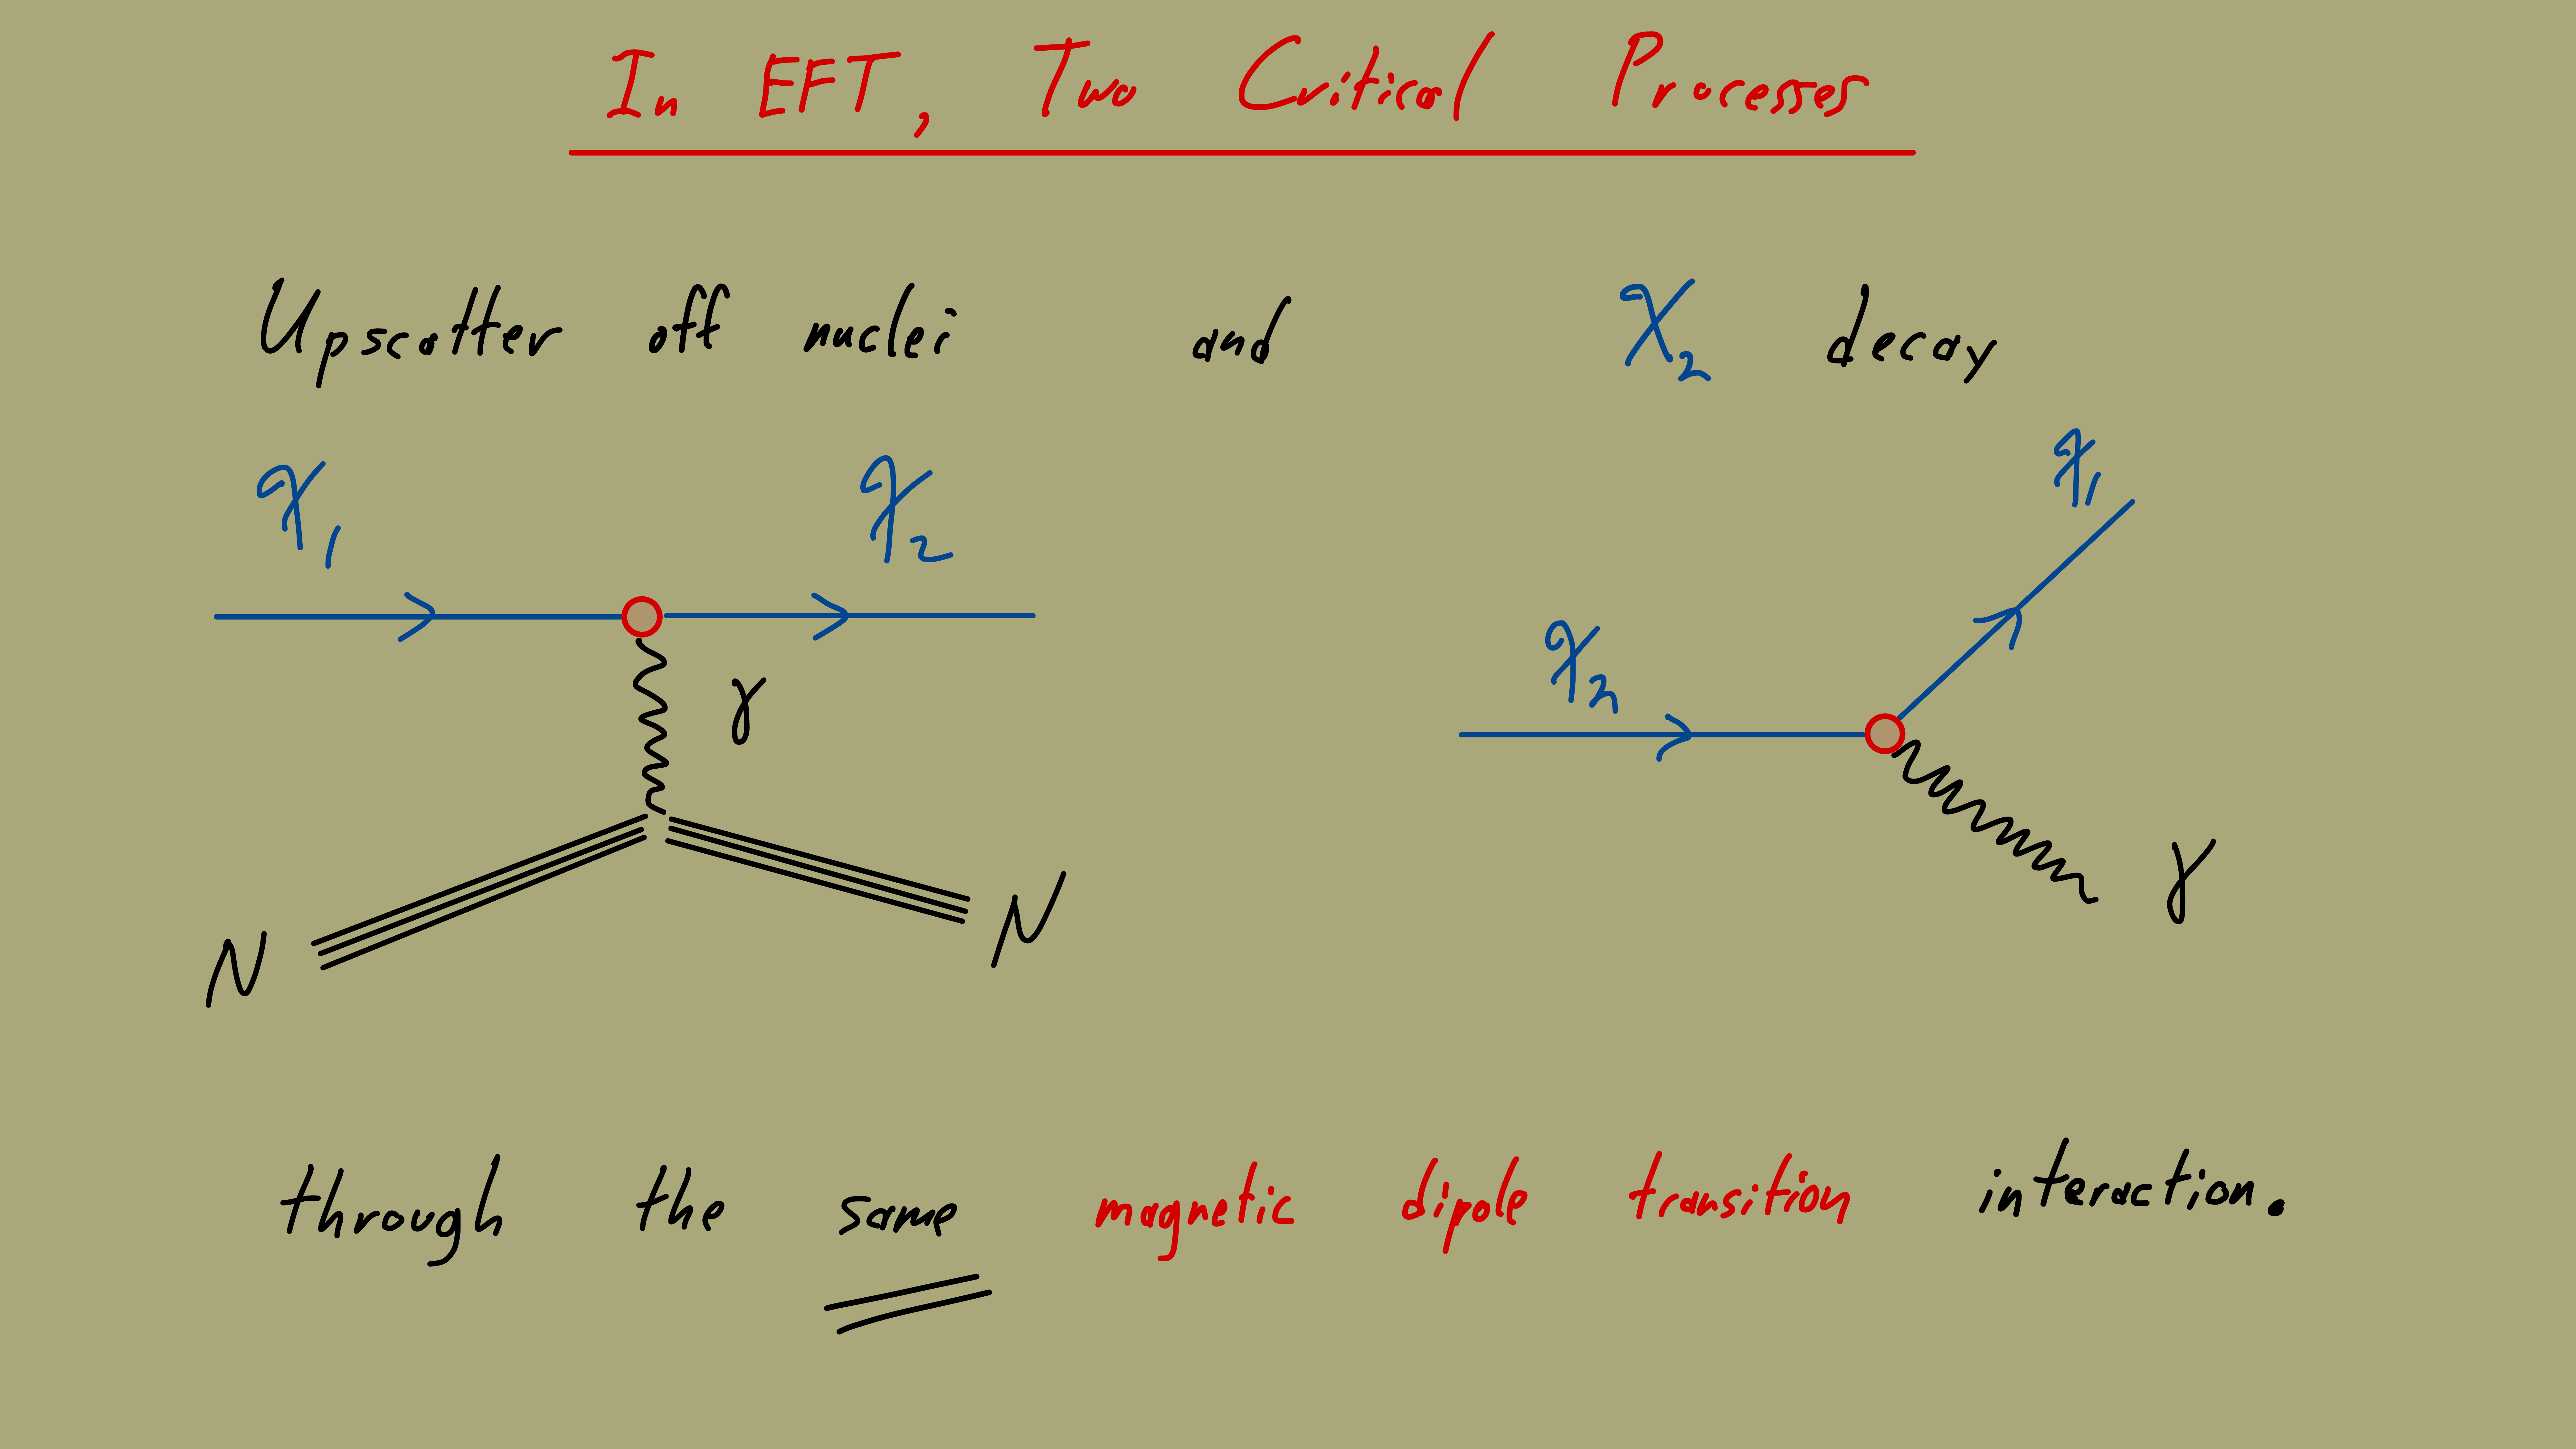 In EFT, Two Critical Processes
Upscatter off nuclei and χ₂ decay
χ₁ χ₂
γ
N N
χ₂ χ₁
γ
through the same magnetic dipole transition interaction.